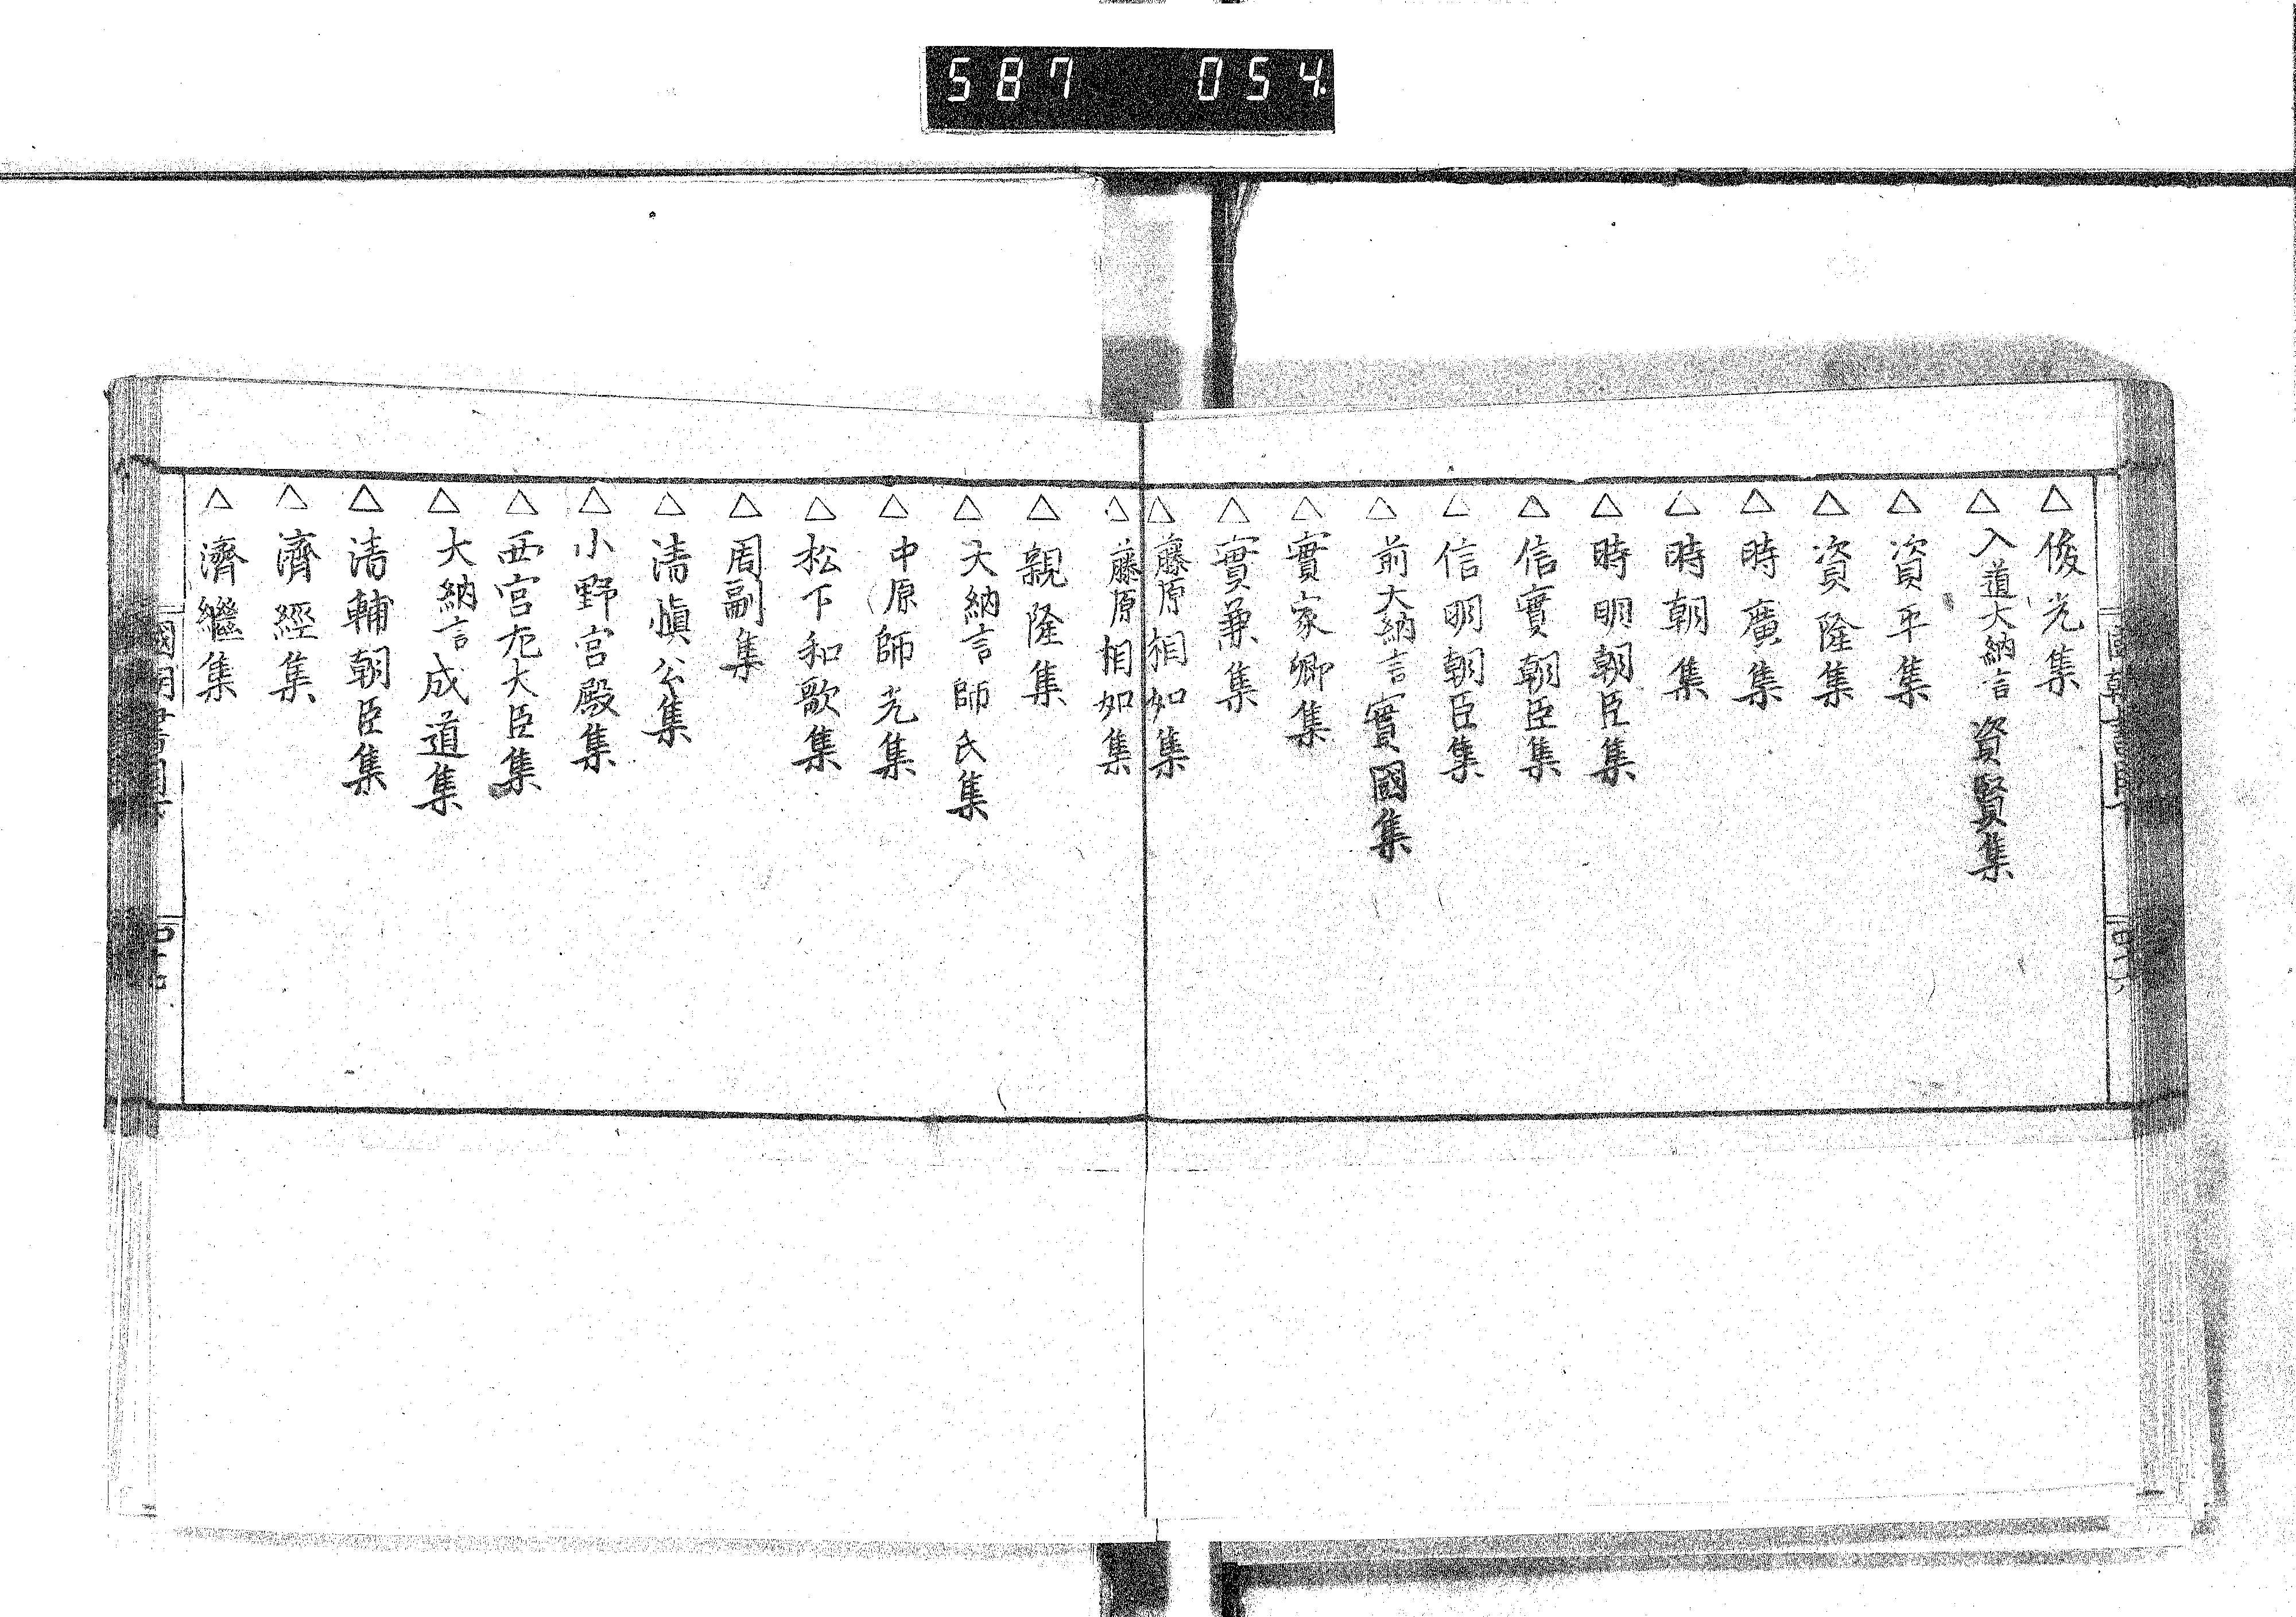 587 054
△俊光集
△入道大納言資賢集
△資平集
△資隆集
△時廣集
△時朝集
△時明朝臣集
△信實朝臣集
△信明朝臣集
△前大納言實國集
△實家卿集
△實兼集
△藤原相如集
△藤原相如集
△親隆集
△大納言師氏集
△中原師光集
△松下和歌集
△周嗣集
△清愼公集
△小野宮殿集
△西宮左大臣集
△大納言成道集
△清輔朝臣集
△濟經集
△濟繼集